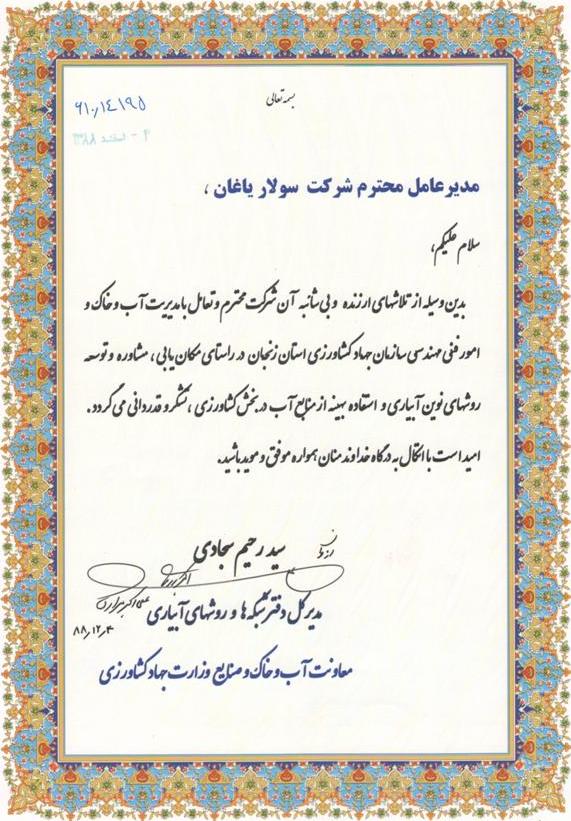 بسمه تعالی
۶۱۰/۱۴۱۹۵
۴ - اسفند ۱۳۸۸
مدیرعامل محترم شرکت سولار یاغان ،
سلام علیکم،
بدین وسیله از تلاشهای ارزنده و بی شائبه آن شرکت محترم و تعامل با مدیریت آب و خاک و
امور فنی مهندسی سازمان جهاد کشاورزی استان زنجان در راستای مکان یابی ، مشاوره و توسعه
روشهای نوین آبیاری و استفاده بهینه از منابع آب در بخش کشاورزی ، تشکر و قدردانی می گردد.
امید است با اتکال به درگاه خداوند منان همواره موفق و موید باشید.
سید رحیم سجادی
مدیر کل دفتر شبکه ها و روشهای آبیاری
۸۸/۱۲/۴
معاونت آب و خاک و صنایع وزارت جهاد کشاورزی